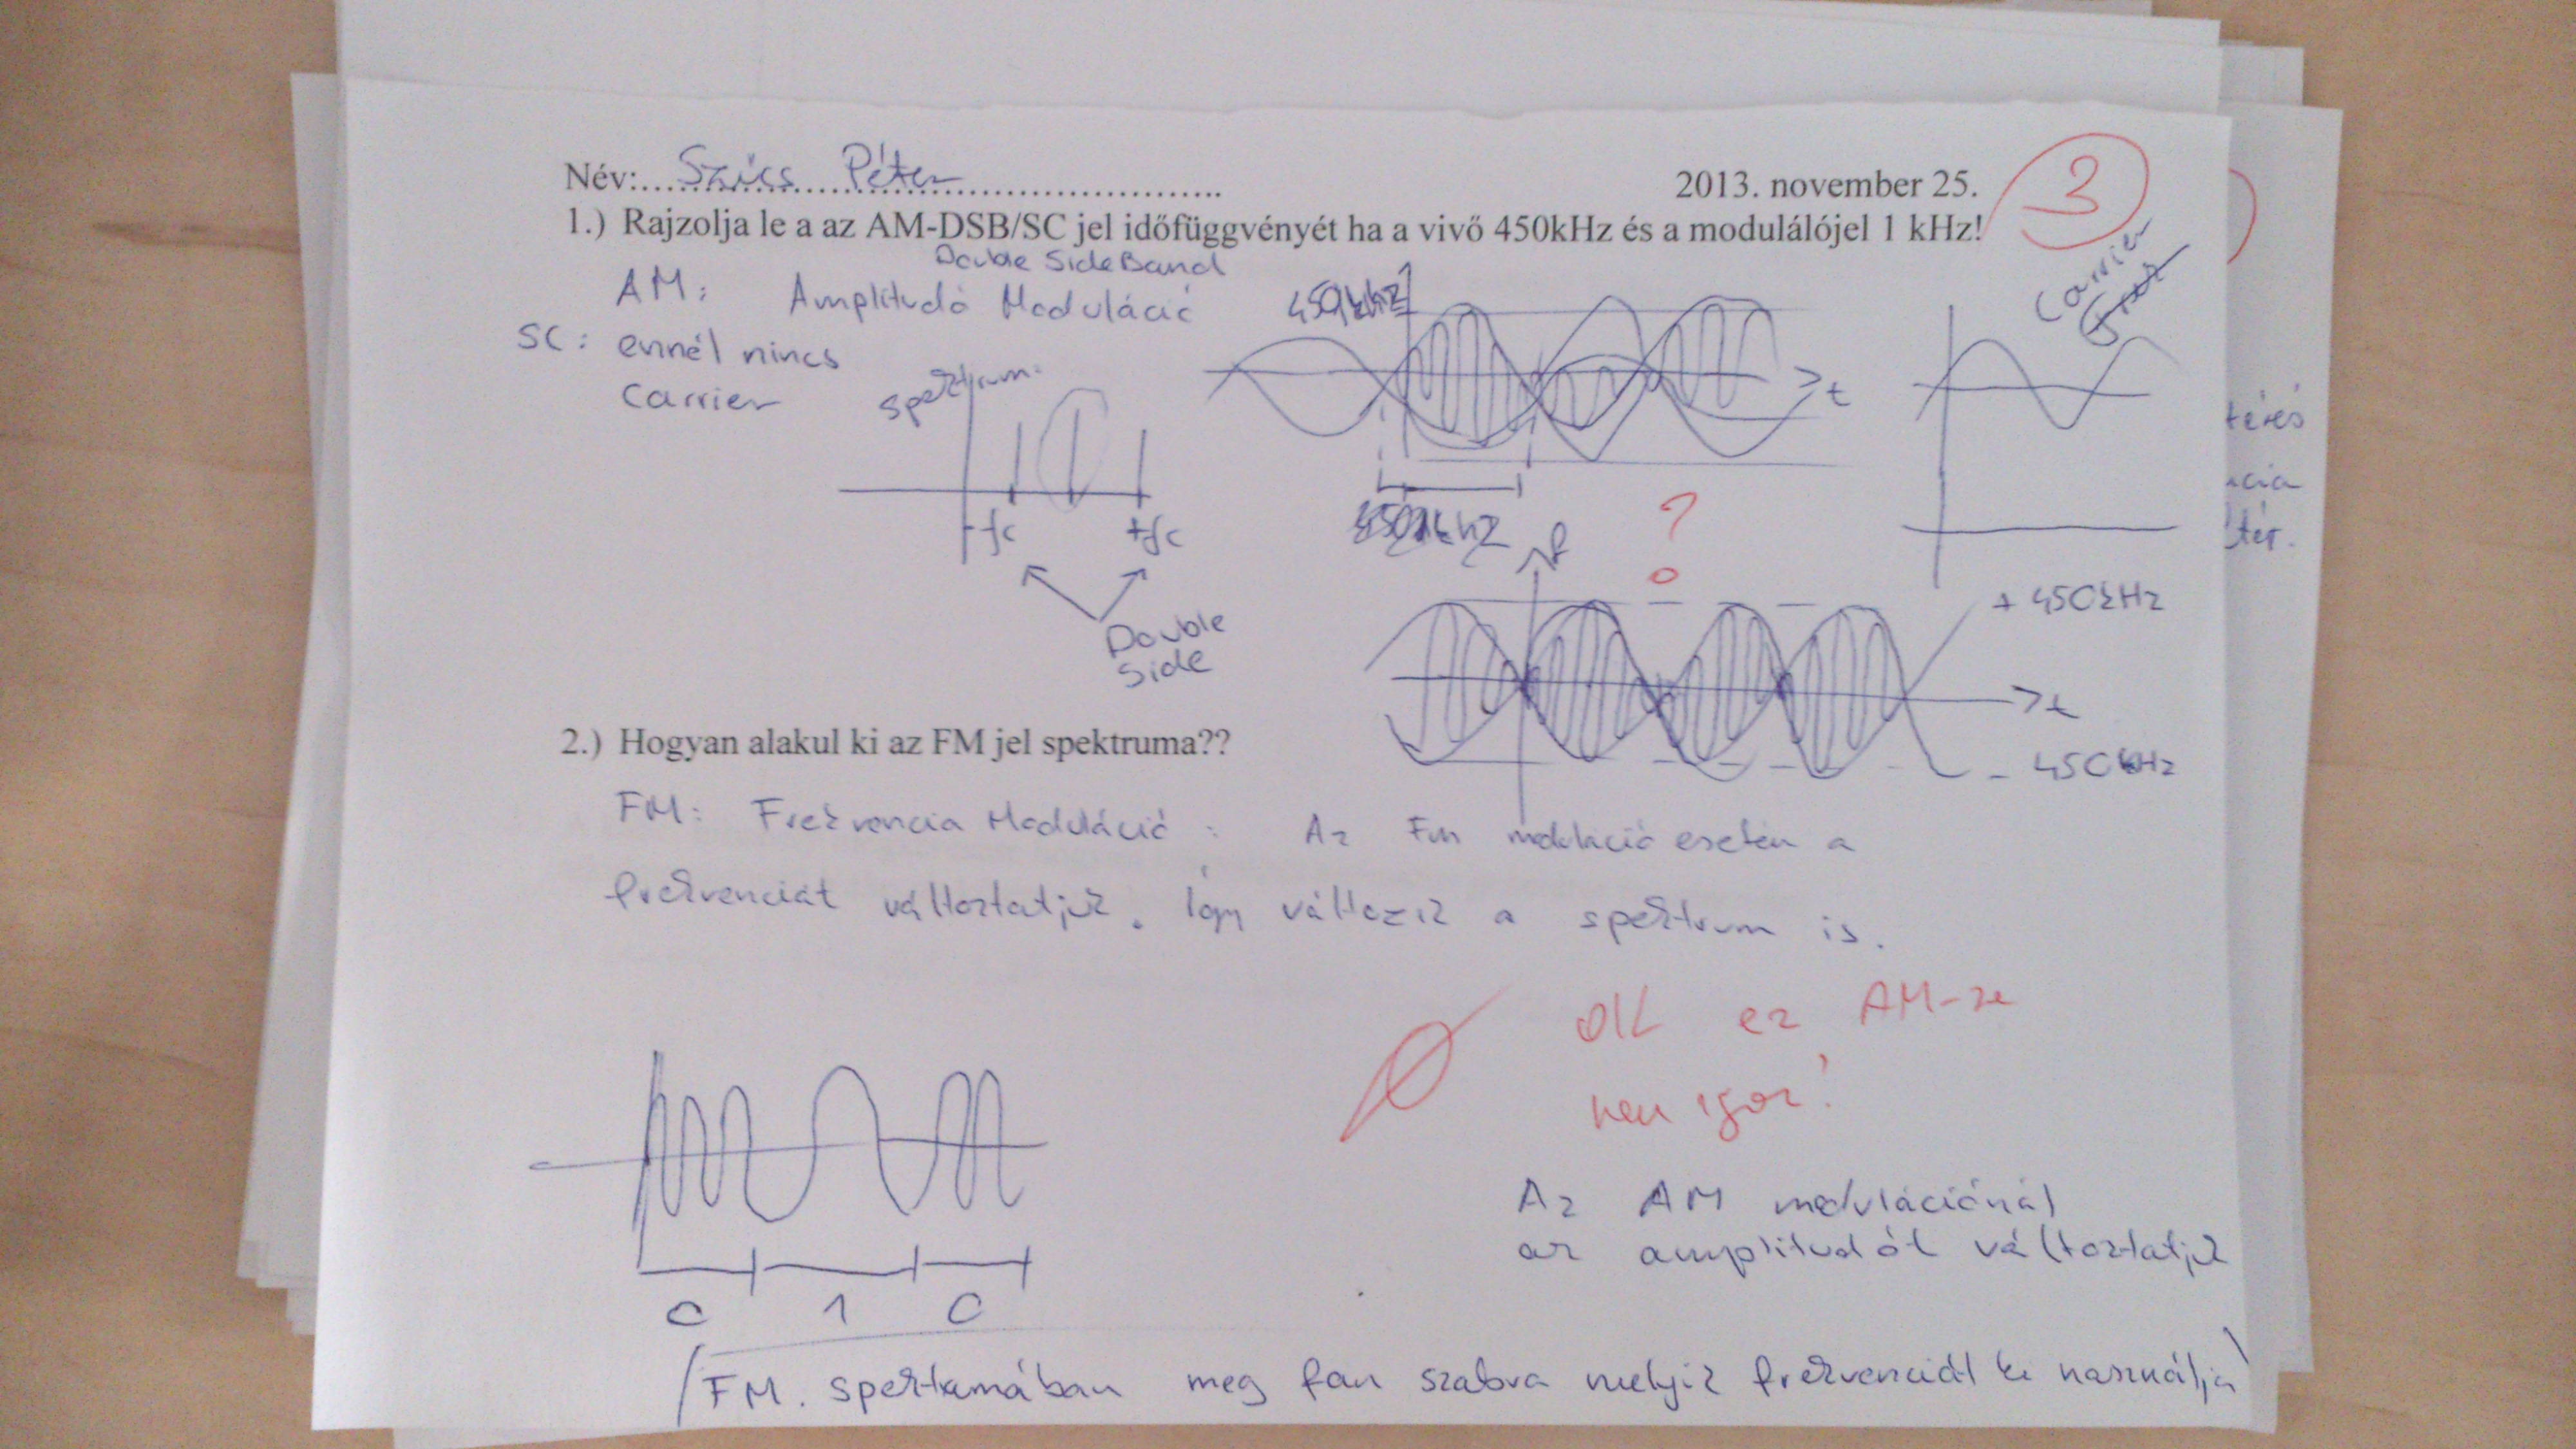 Név:.... Szűcs Péter ....
2013. november 25.
1.) Rajzolja le a az AM-DSB/SC jel időfüggvényét ha a vivő 450kHz és a modulálójel 1 kHz!
Double SideBand
AM: Amplitudó Moduláció
SC: ennél nincs
Carrier
spektrum:
-fc
+fc
Double
Side
t
Carrier
?
f
+ 450kHz
t
- 450kHz
2.) Hogyan alakul ki az FM jel spektruma??
FM: Frekvencia Moduláció : Az FM moduláció esetén a
frekvenciát változtatjuk. Így változik a spektrum is.
OK ez AM-re
nem igaz!
Az AM modulációnál
az amplitudót változtatjuk
0 1 0
(FM. spektrumában meg fan szabva melyik frekvenciát használja)
térés
ncia
ltér.